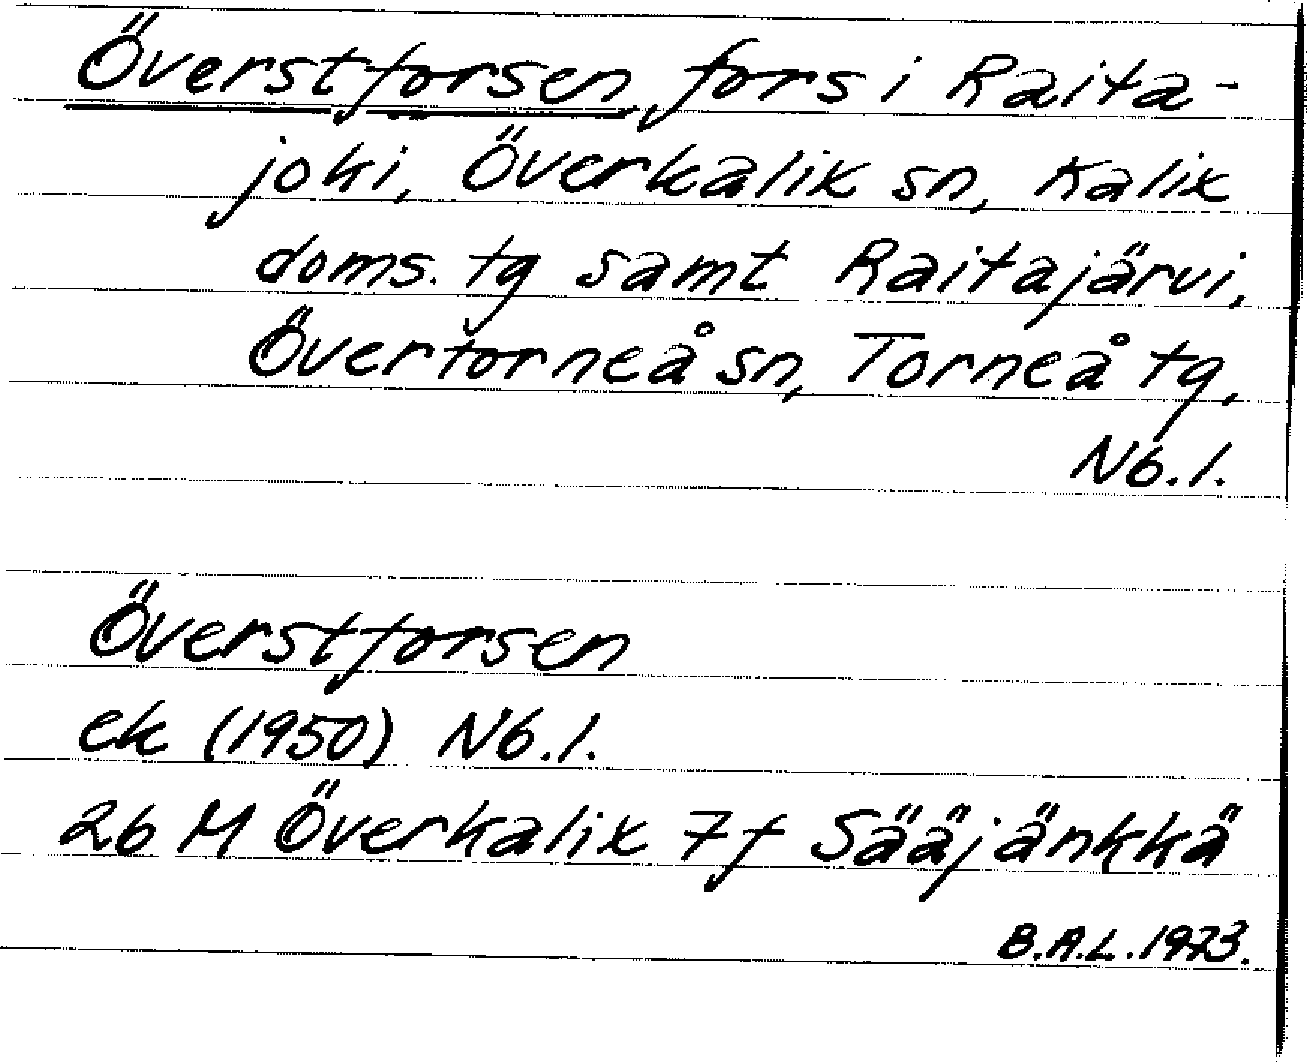 Överstforsen, fors i Raita-
joki, Överkalix sn, Kalix
doms. tg samt Raitajärvi,
Övertorneå sn, Torneå tg,
Nb. l.
Överstforsen
ek (1950) Nb. l.
26 M Överkalix 7f Sääjänkkä
B.A.L. 1973.